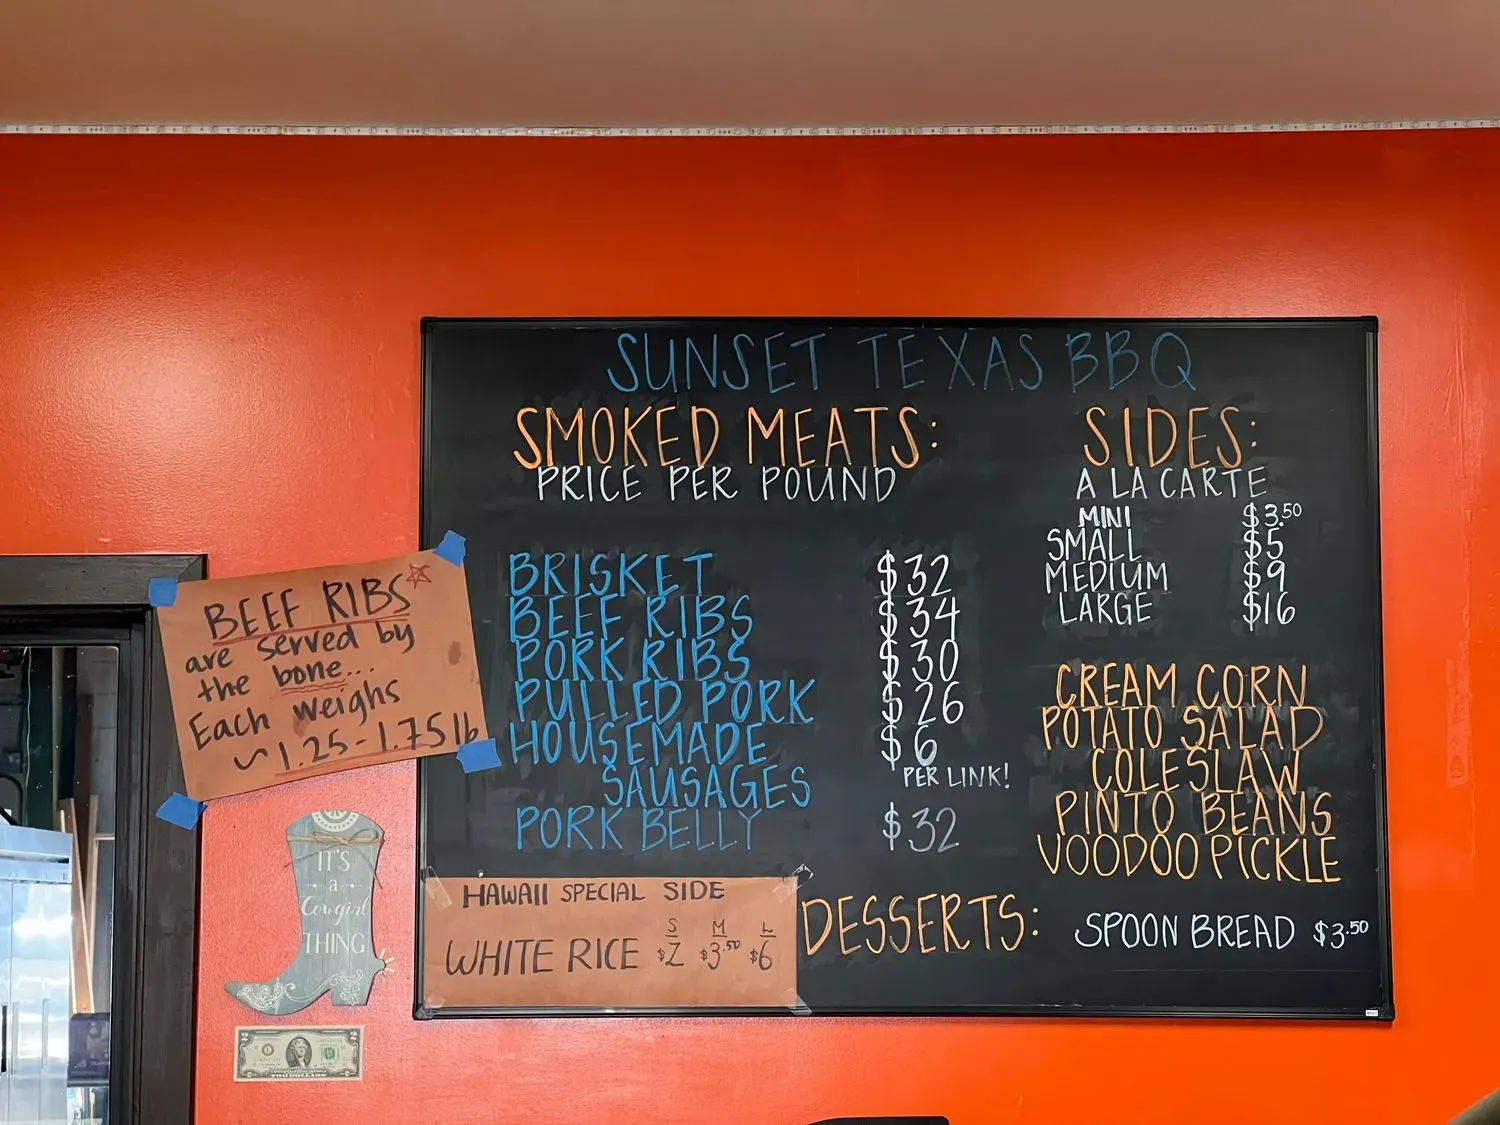 SUNSET TEXAS BBQ
SMOKED MEATS:
PRICE PER POUND
BRISKET $32
BEEF RIBS $34
PORK RIBS $30
PULLED PORK $26
HOUSEMADE $6
SAUSAGES PER LINK!
PORK BELLY $32
SIDES:
A LA CARTE
MINI $3.50
SMALL $5
MEDIUM $9
LARGE $16
CREAM CORN
POTATO SALAD
COLESLAW
PINTO BEANS
VOODOO PICKLE
DESSERTS: SPOON BREAD $3.50
HAWAII SPECIAL SIDE
S M L
WHITE RICE $2 $3.50 $6
BEEF RIBS
are served by
the bone...
Each weighs
~1.25-1.75 lb
IT'S
a
Cowgirl
THING
2 2
TWO DOLLARS